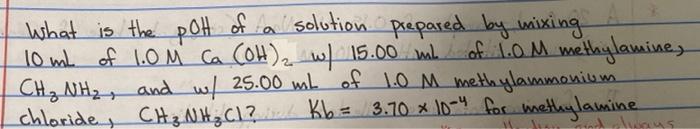 What is the pOH of a solution prepared by mixing
10 mL of 1.0 M Ca (OH)2 w/ 15.00 mL of 1.0 M methylamine,
CH3NH2, and w/ 25.00 mL of 1.0 M methylammonium
chloride, CH3NH3Cl? Kb = 3.70 x 10-4 for methylamine